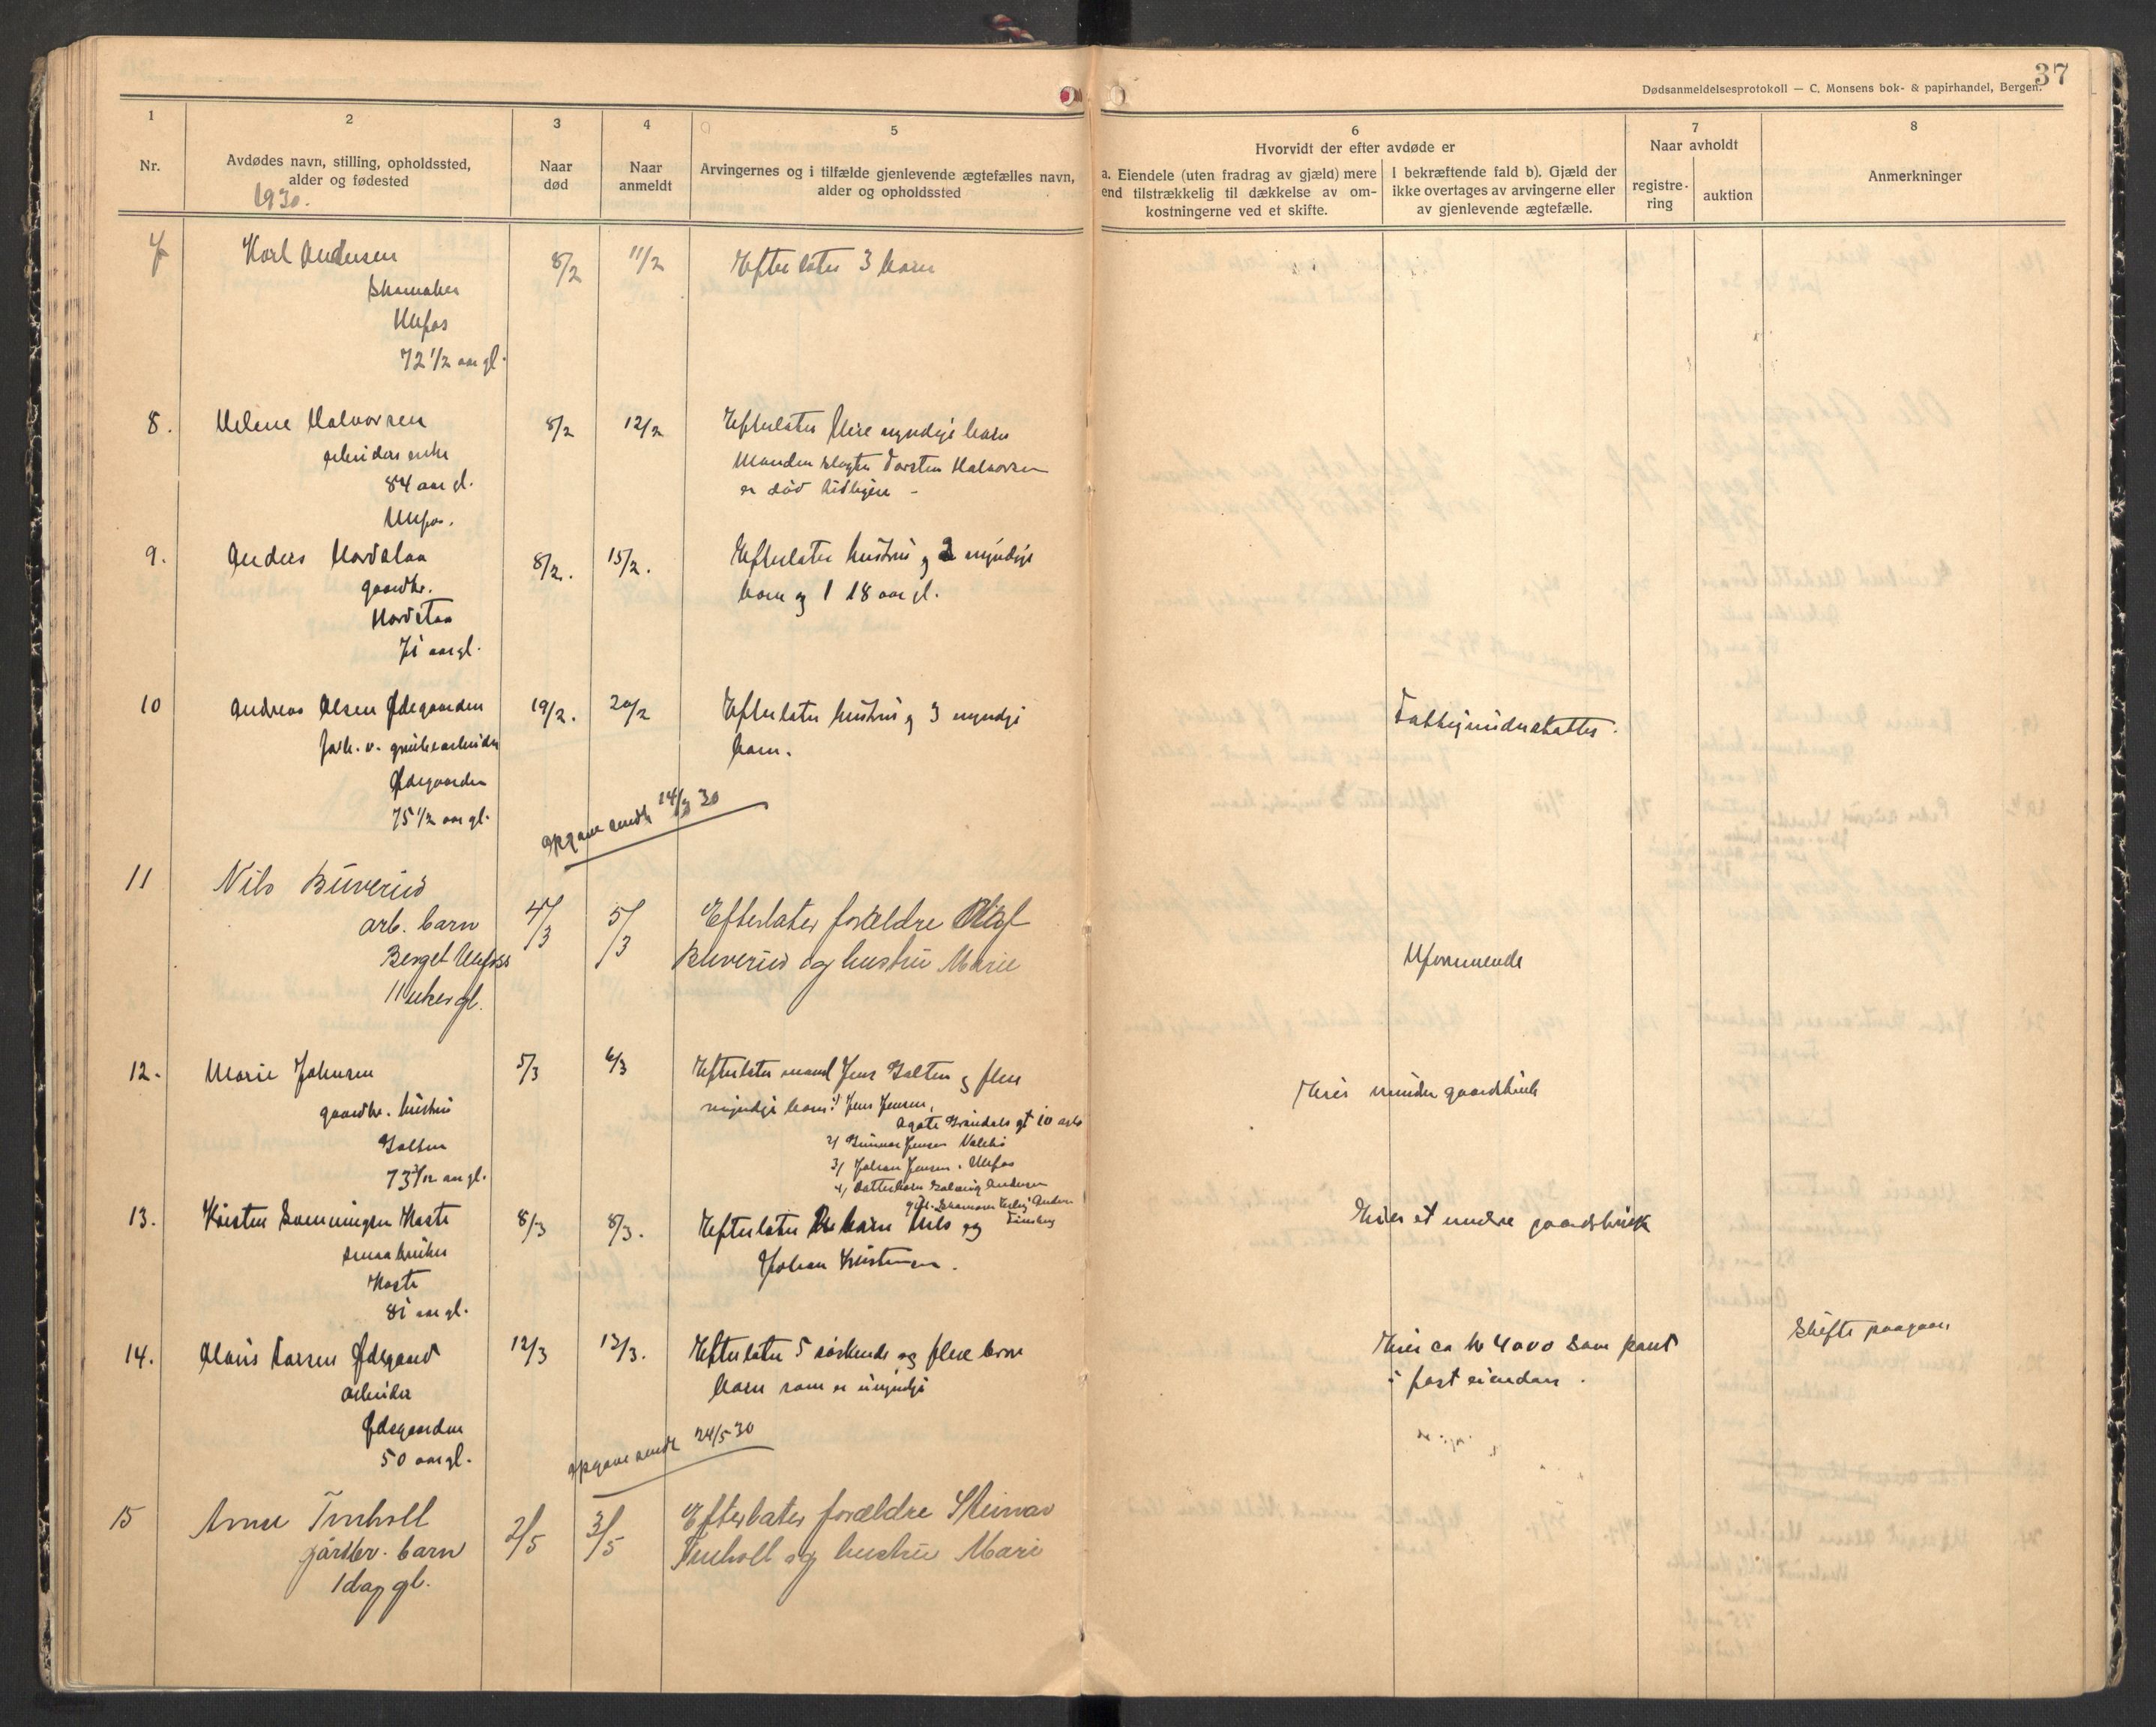 37
Dødsanmeldelsesprotokoll — C. Monsens bok- & papirhandel, Bergen.
1
2
3
4
5
6
7
8
Nr.
Avdødes navn, stilling, opholdssted,
alder og fødested
1930.
Naar
død
Naar
anmeldt
Arvingernes og i tilfælde gjenlevende ægtefælles navn,
alder og opholdssted
Hvorvidt der efter avdøde er
a. Eiendele (uten fradrag av gjæld) mere
end tilstrækkelig til dækkelse av om-
kostningerne ved et skifte.
I bekræftende fald b). Gjæld der
ikke overtages av arvingerne eller
av gjenlevende ægtefælle.
Naar avholdt
registre-
ring
auktion
Anmerkninger
7 Karl Andersen 8/2 11/2 Efterlater 3 barn
Skomaker
Ulefos
72 1/2 aar gl.
8. Helene Halvorsen 8/2 12/2 Efterlater flere myndige barn
arbeider enke Manden Torsten Halvorsen
84 aar gl. er død tidligere -
Ulefos.
9. Anders Nordstaa 8/2. 15/2. Efterlater hustru og 2 myndige
gaardbr. barn og 1 18 aar gl.
Nordstaa
71 aar gl.
10 Andreas Olsen Ødegaarden 19/2. 20/2 Efterlater hustru og 3 myndige
forh. v. grubearbeider barn.
Ødegaarden
75 1/2 aar gl.
Fattigunderstøttet.
opgave sendt 14/3 30
11 Nils Buverud 4/3 5/3 Efterlater forældre Olaf
arb. barn Buverud og hustru Marie
Berget Ulefoss
11 uker gl.
Uformuende
12. Marie Johnsen 5/3 6/3 Efterlater mand Jens Galten og flere
gaardbr. hustru myndige barn: 1/ Jens Jensen,
Galten Agate
73 aar gl. 2/ Gunnar Jensen
3/ Johan Jensen. Ulefos
4/ Datterbarn Solveig Andersen
Eier mindre gaardsbruk
13. Kristen Sveinungsen Kaste 8/3 8/3. Efterlater barn Nils og
smaabruker Johan Kristensen.
Kaste
81 aar gl.
Eier et mindre gaardsbruk
14. Klaus Larsen Ødegaard 12/3 13/3. Efterlater 5 søskende og flere
arbeider barn som er umyndige
Ødegaarden
50 aar gl.
Eier ca kr 4000 som pant
i fast eiendom.
Skifte paagaar
opgave sendt 24/5 30
15 Anne Tveiholt 2/5 3/5 Efterlater forældre Steinar
gårdbr. barn Tveiholt og hustru Mari
1 dag gl.